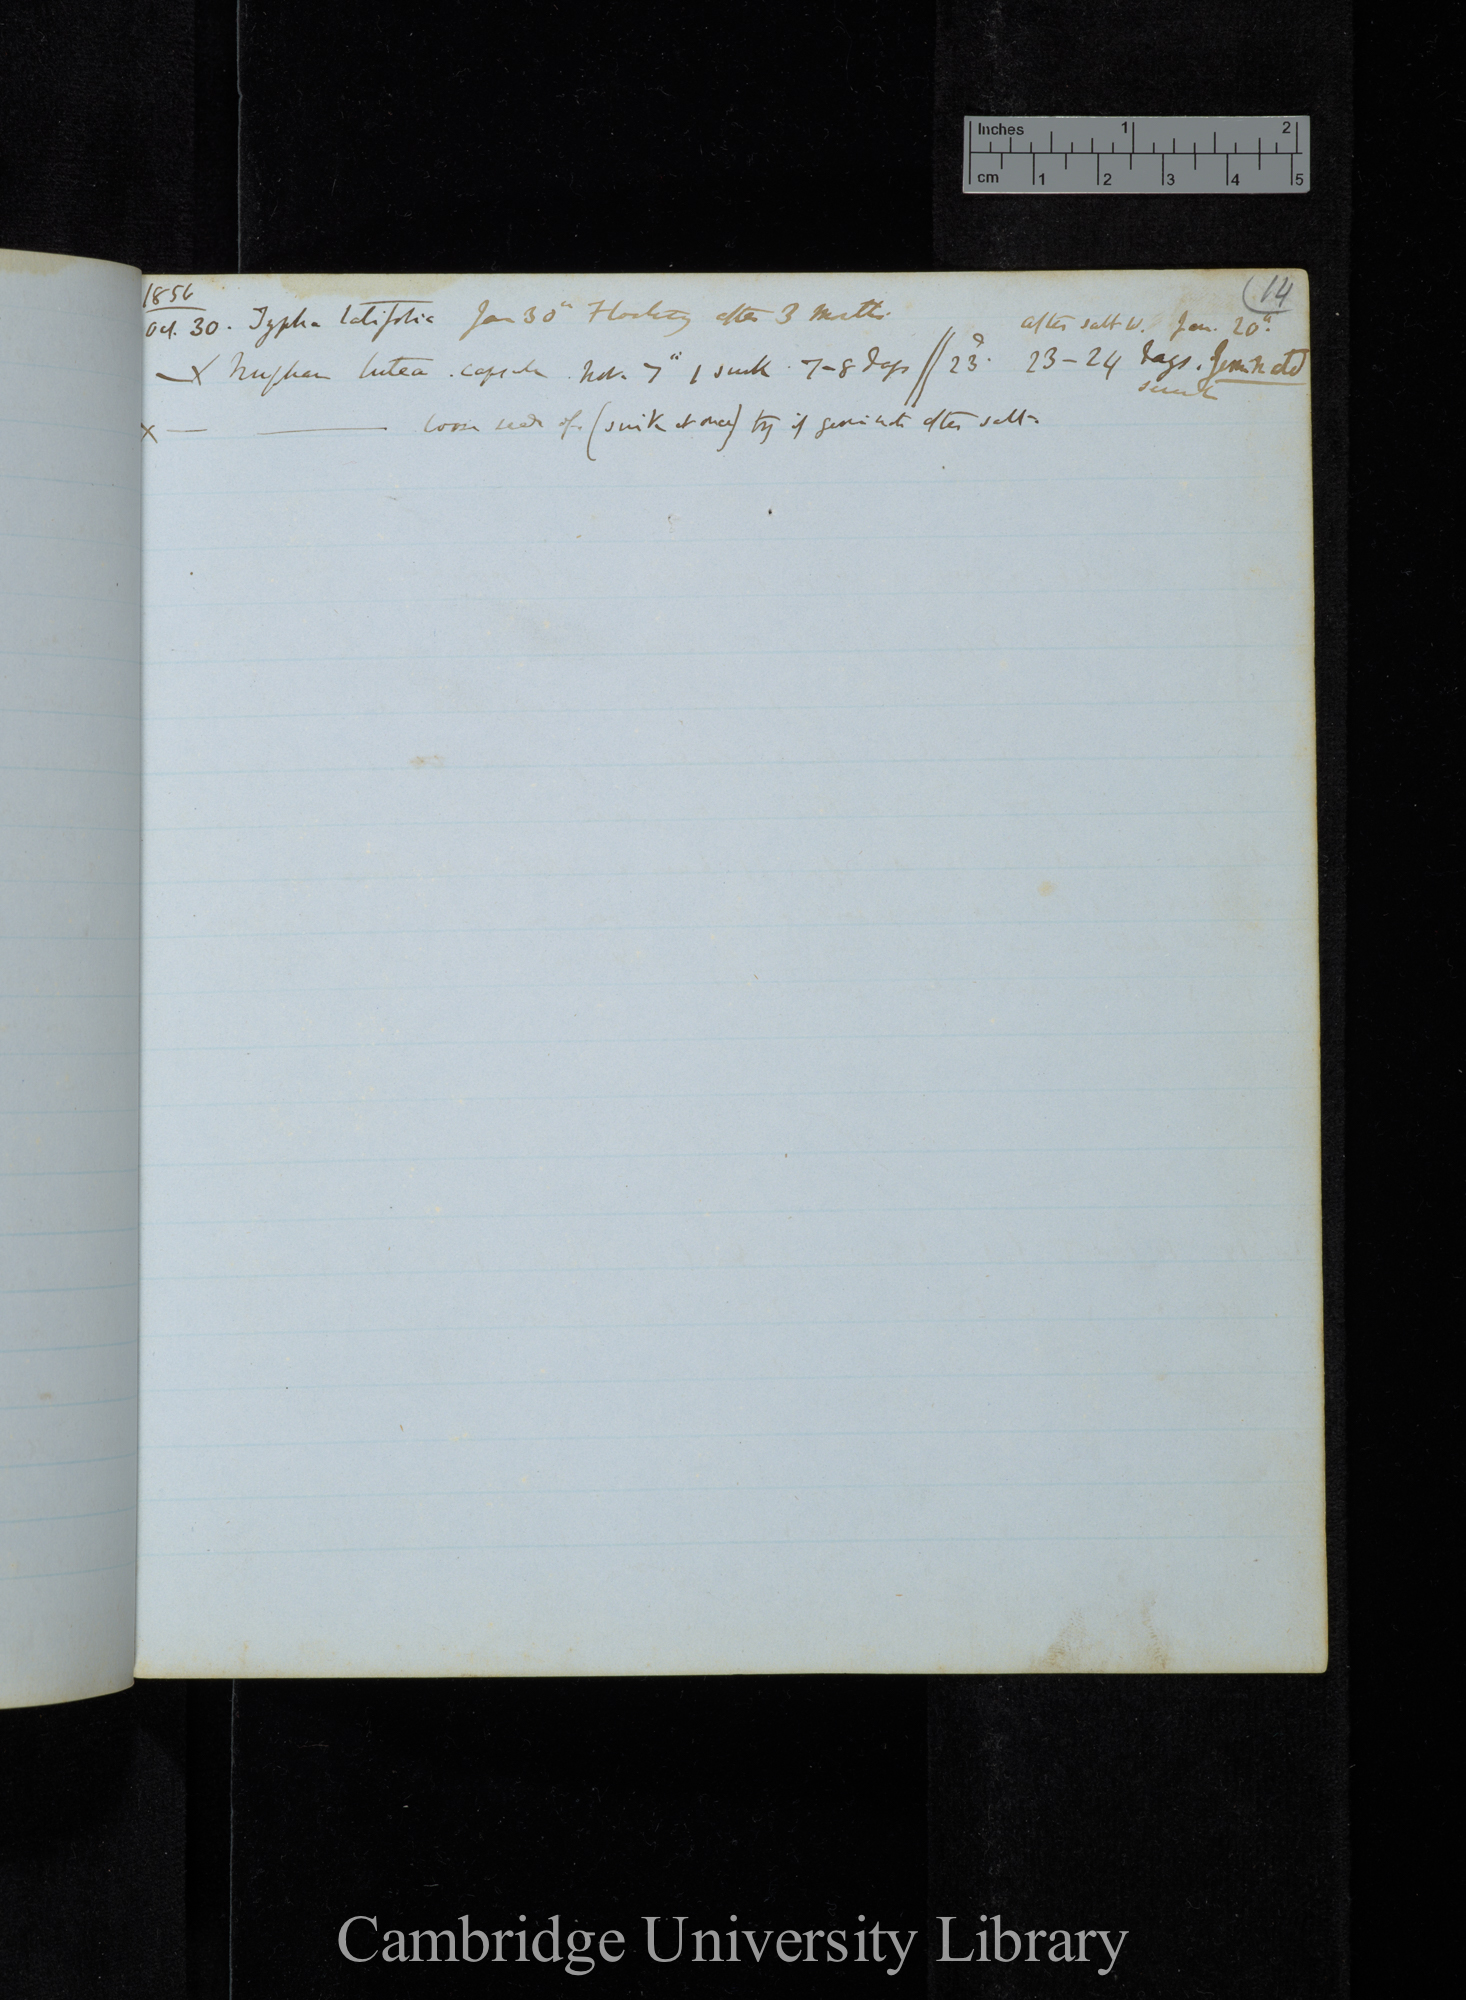 Inches 1 2
cm 1 2 3 4 5
14
1856
Oct. 30. Typha latifolia Jan 30th Floating after 3 months
after salt W. Jan. 20th
X Nuphar lutea capsule Nov. 7th 1 sunk 7-8 days // 23d. 23-24 days. Germinated
sunk
X — — loose seeds of (sink at once) try if germinate after salt-
Cambridge University Library